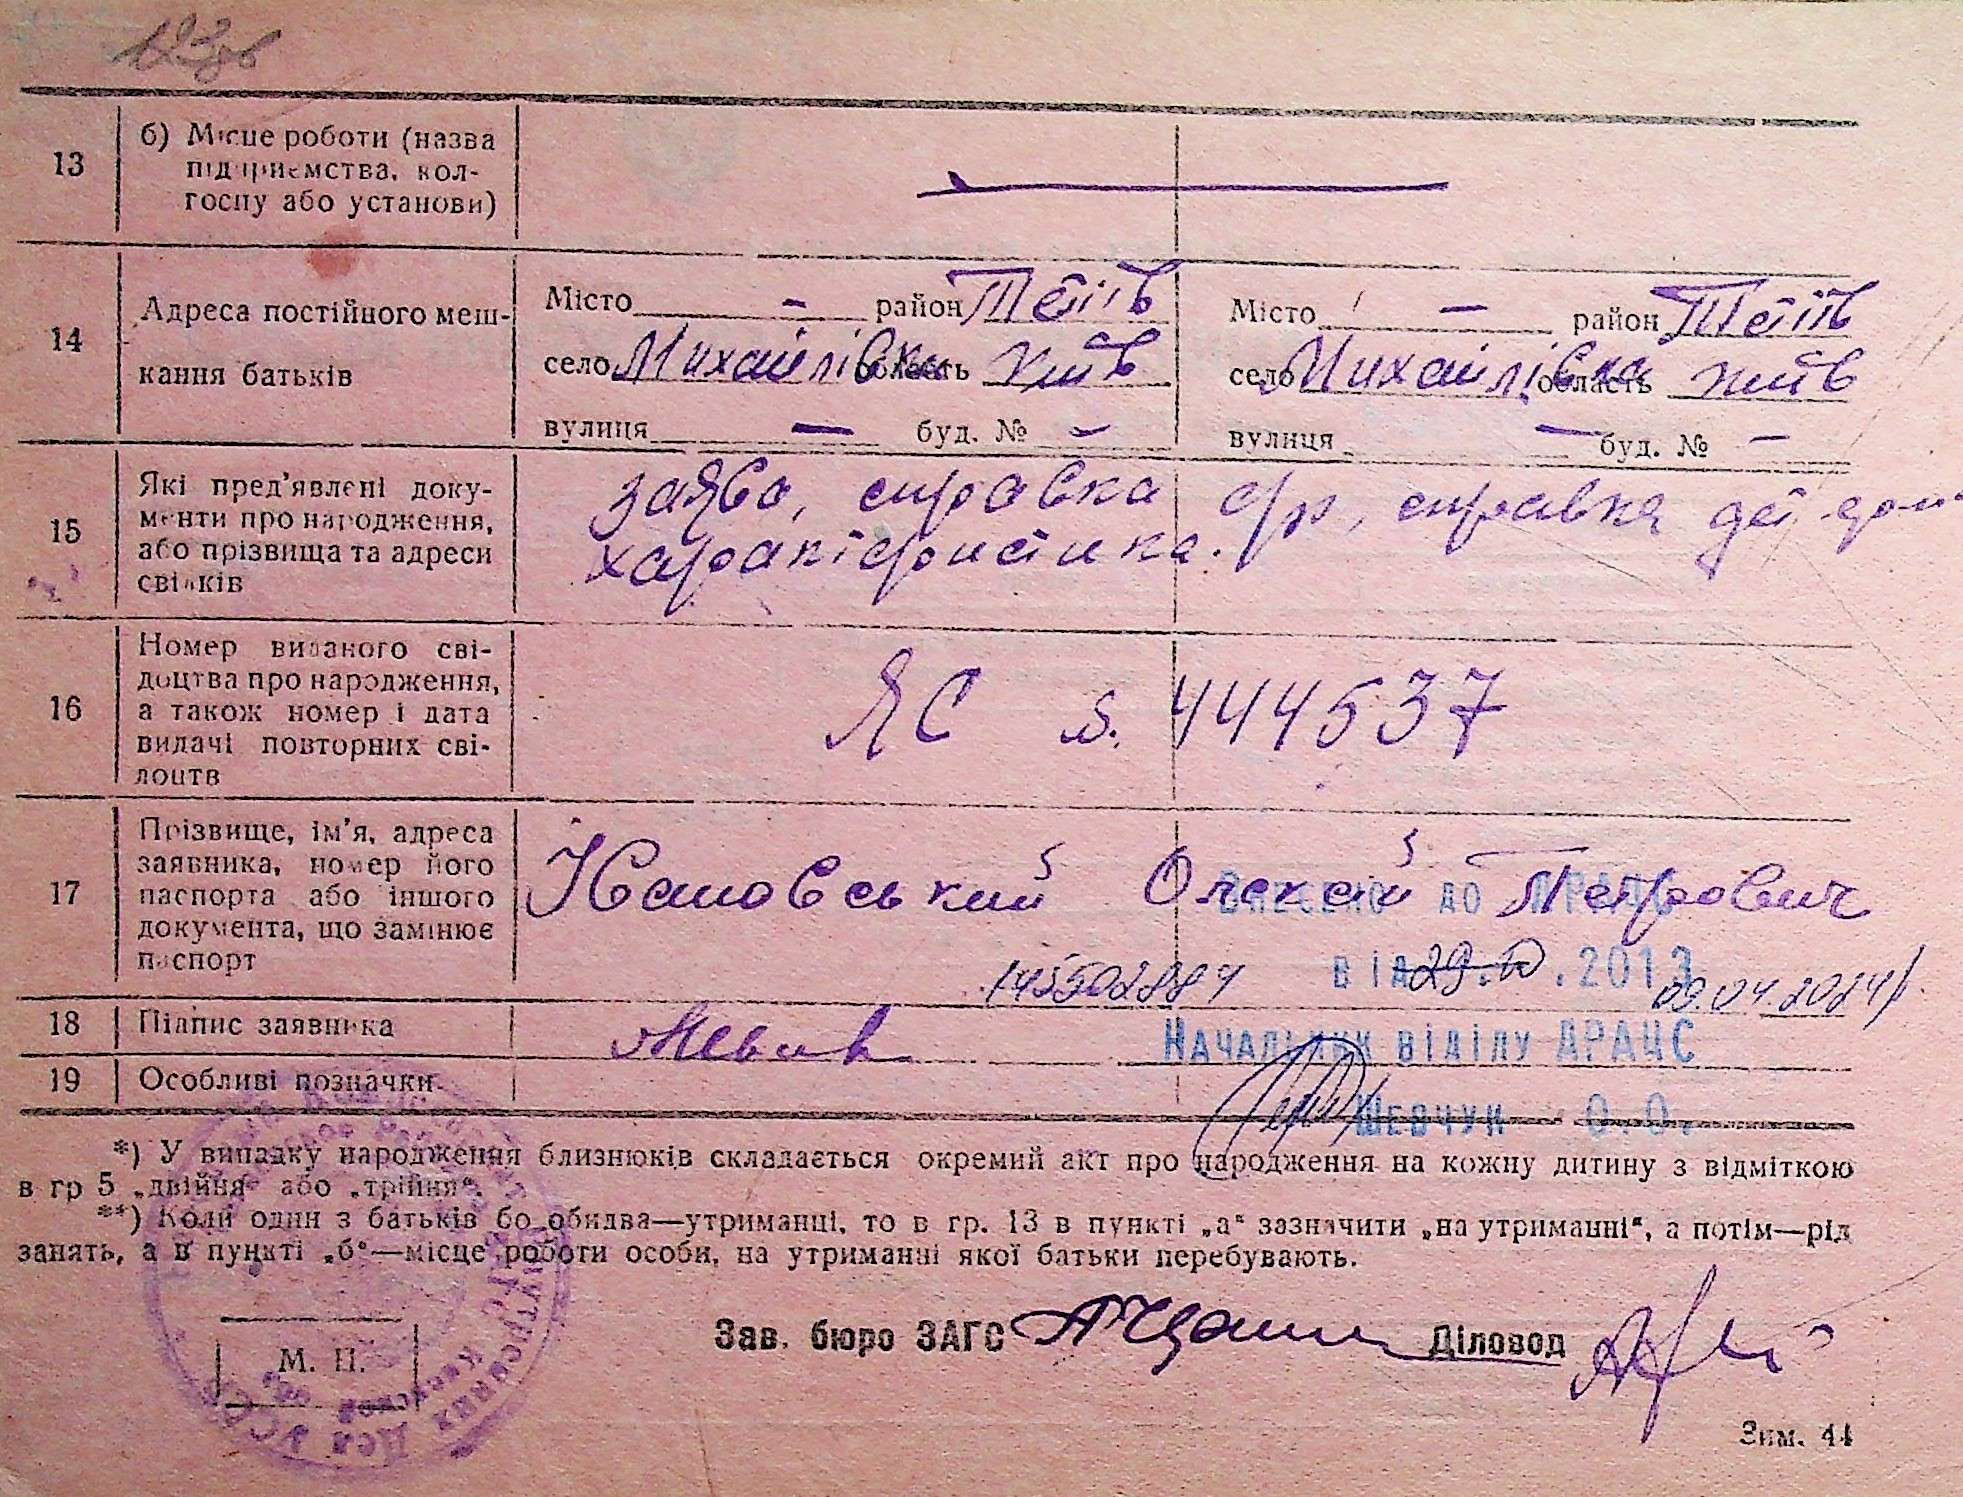 13
б) Місце роботи (назва
підприємства, кол-
госпу або установи)
14
Адреса постійного меш-
кання батьків
Місто — район Тетіїв
село Михайлівка область Київ
вулиця — буд. № —
Місто — район Тетіїв
село Михайлівка область Київ
вулиця — буд. № —
15
Які пред'явлені доку-
менти про народження,
або прізвища та адреси
свідків
заява, справка с/р, справка дет. дом
характеристика.
16
Номер виданого сві-
доцтва про народження,
а також номер і дата
видачі повторних сві-
доцтв
ЯС 444537
17
Прізвище, ім'я, адреса
заявника, номер його
паспорта або іншого
документа, що замінює
паспорт
Івановський Олексій Петрович
Внесено до ДРАЦС
145502884 від 29.10.2013 09.04.2024
18
Підпис заявника
Начальник відділу ДРАЦС
19
Особливі позначки
Шевчук О.О.
*) У випадку народження близнюків складається окремий акт про народження на кожну дитину з відміткою
в гр 5 „двійня“ або „трійня“.
**) Коли один з батьків бо обидва—утриманці, то в гр. 13 в пункті „а“ зазначити „на утриманні“, а потім—рід
занять, а в пункті „б“—місце роботи особи, на утриманні якої батьки перебувають.
М. П.
Зав. бюро ЗАГС
Діловод
Зим. 44